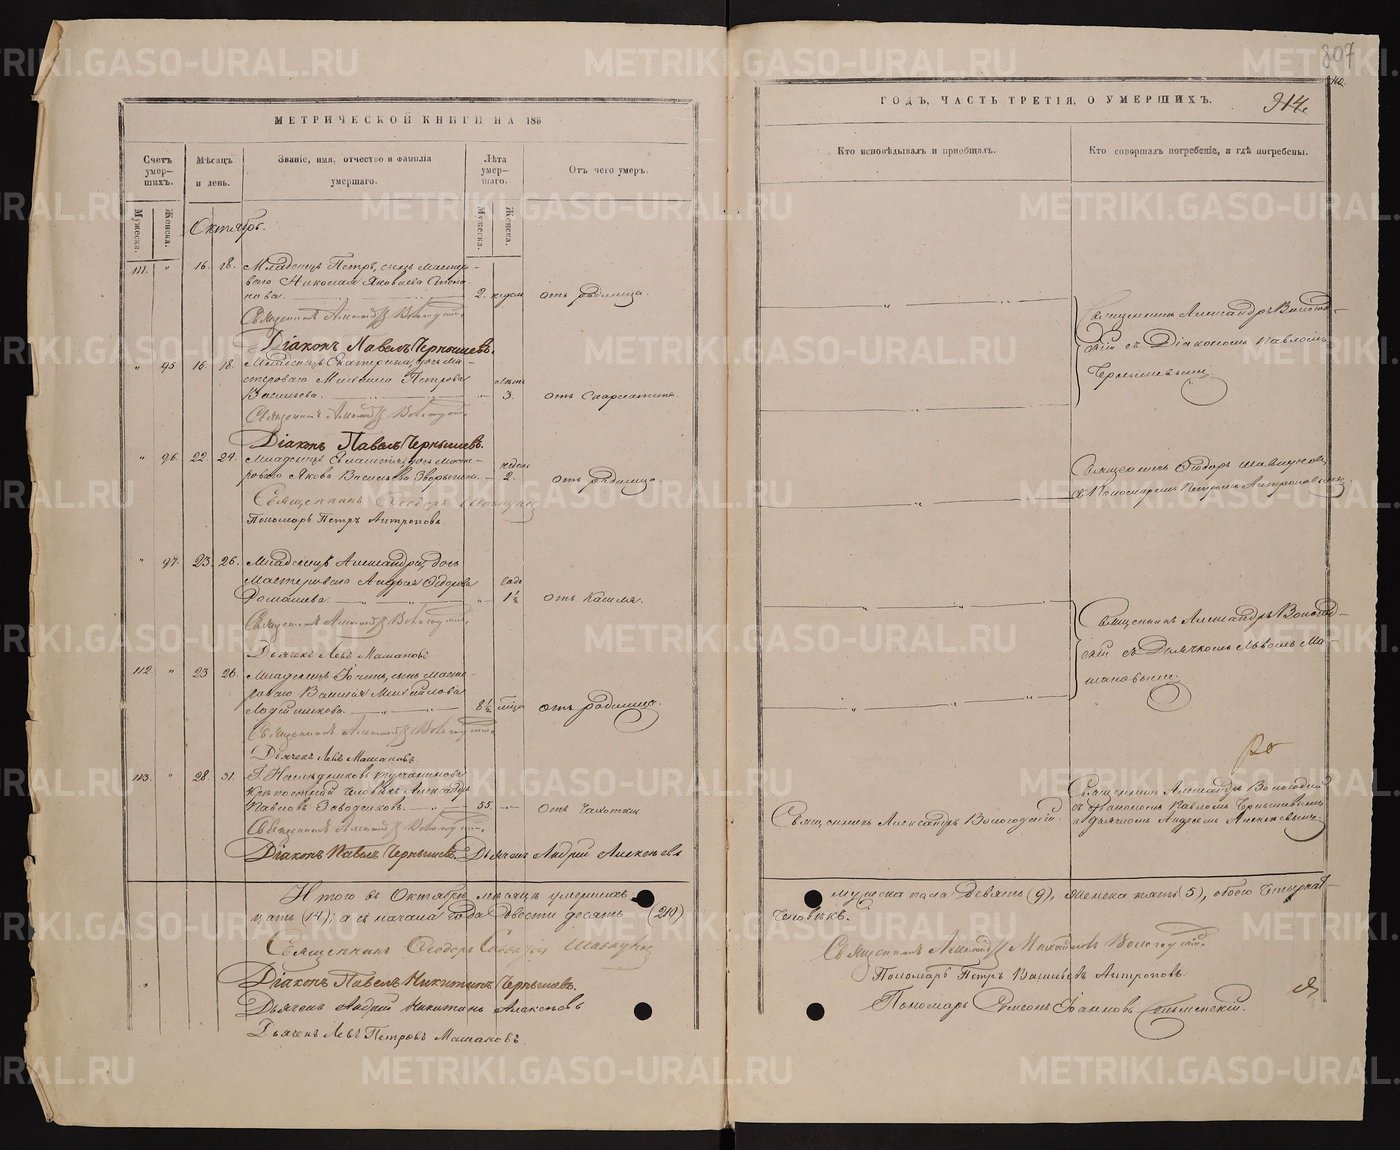 807
914
МЕТРИЧЕСКОЙ КНИГИ НА 185
ГОДЪ, ЧАСТЬ ТРЕТІЯ, О УМЕРШИХЪ.
Счетъ умер-шихъ.
Мѣсяцъ и день.
Званіе, имя, отчество и фамилія умершаго.
Лѣта умер-шаго.
Отъ чего умеръ.
Кто исповѣдывалъ и пріобщалъ.
Кто совершалъ погребеніе, и гдѣ погребены.
Мужеска. Женска.
Мужеска. Женска.
Октябрь.
111. " 16. 18. Младенецъ Петръ, сынъ масте-
роваго Николая Яковлева
2. недели отъ родимца.
Священникъ Александръ Вологодскій.
Діаконъ Павелъ Чернышевъ.
" 95 16. 18. Младенецъ Екатерина, дочь ма-
стероваго Михаила Петрова
Васильева. лѣтъ 3. отъ Скарлатины.
Священникъ Александръ Вологодскій
Діаконъ Павелъ Чернышевъ.
Священникъ Александръ Вологод-
скій съ Діакономъ Павломъ
Чернышевымъ
" 96. 22. 24. Младенецъ дочь масте-
роваго Якова Васильева недели 2. отъ родимца.
Священникъ Ѳеодоръ Шавкуновъ
Пономарь Петръ Антроповъ.
Священникъ Ѳеодоръ Шавкуновъ
съ Пономаремъ Петромъ Антроповымъ.
" 97. 23. 26. Младенецъ Александра, дочь
Мастероваго Андрея Ѳедорова
года 1½ отъ Кашля.
Священникъ Александръ Вологодскій
Дьячекъ Левъ Машановъ
112 " 23 26. Младенецъ сынъ масте-
роваго Василья Михайлова
8½ мѣсяц отъ родимца.
Священникъ Александръ Вологодскій.
Дьячекъ Левъ Машановъ
Священникъ Александръ Вологод-
скій съ Дьячкомъ Львомъ Ма-
шановымъ.
113. " 28. 31. Г. Наслѣдниковъ Турчанинова
Крѣпостной человѣкъ Александръ
Павловъ Заводчиковъ. 55. отъ чахотки
Священникъ Александръ Вологодскій.
Діаконъ Павелъ Чернышевъ. Дьячекъ Андрей Алексѣевъ
Священникъ Александръ Вологодскій.
Священникъ Александръ Вологодскій
съ Діакономъ Павломъ Чернышевымъ
и дьячкомъ Андреемъ Алексѣевымъ.
Итого въ Октябрѣ мѣсяцѣ умершихъ мужеска пола девять (9), женска пять (5), обоего четырнад-
цать (14); а съ начала года двѣсти десять (210) человѣкъ.
Священникъ Ѳеодоръ Шавкуновъ
Діаконъ Павелъ Никитинъ Чернышевъ.
Дьячекъ Андрей Никитинъ Алексѣевъ
Дьячекъ Левъ Петровъ Машановъ.
Священникъ Александръ Михайловъ Вологодскій
Пономарь Петръ Васильевъ Антроповъ.
Пономарь Симеонъ Іоанновъ
METRIKI.GASO-URAL.RU